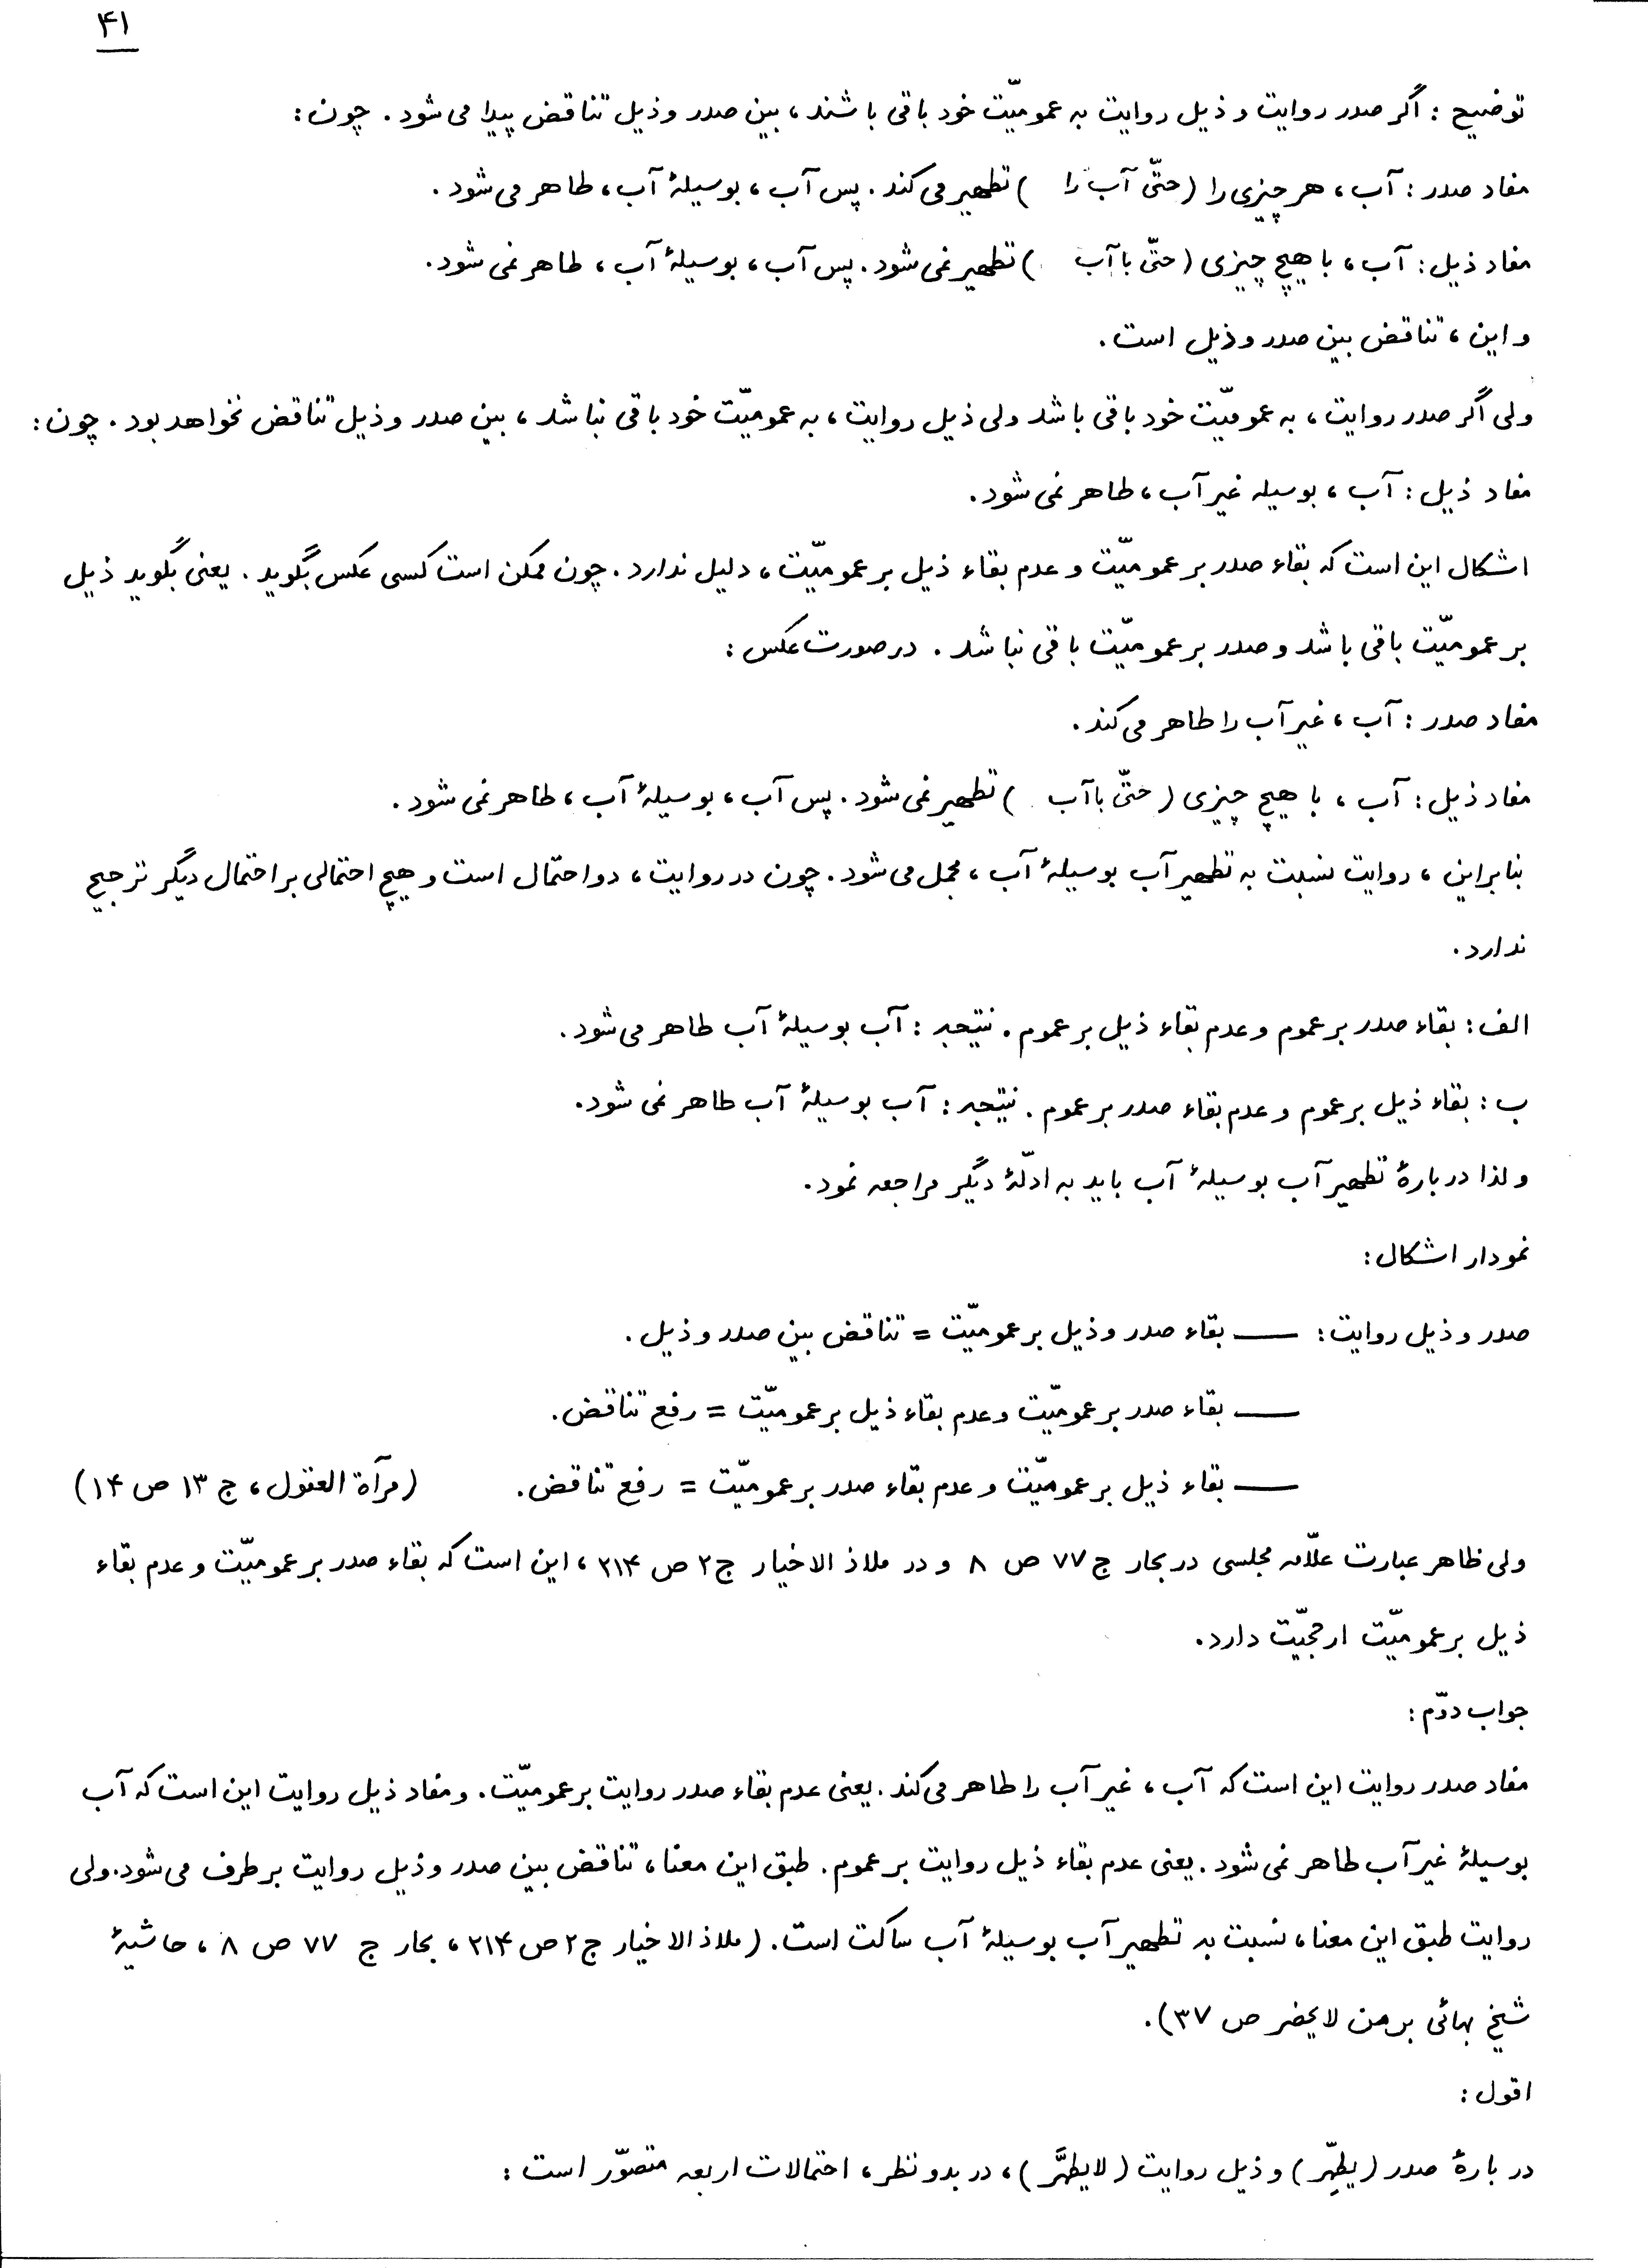 ۴۱
توضیح : اگر صدر روایت و ذیل روایت به عمومیّت خود باقی باشند ، بین صدر و ذیل تناقض پیدا می شود . چون :
مفاد صدر : آب ، هر چیزی را ( حتّی آب را ) تطهیر می کند . پس آب ، بوسیلهٔ آب ، طاهر می شود .
مفاد ذیل : آب ، با هیچ چیزی ( حتّی با آب ) تطهیر نمی شود . پس آب ، بوسیلهٔ آب ، طاهر نمی شود .
و این ، تناقض بین صدر و ذیل است .
ولی اگر صدر روایت ، به عمومیّت خود باقی باشد ولی ذیل روایت ، به عمومیّت خود باقی نباشد ، بین صدر و ذیل تناقض نخواهد بود . چون :
مفاد ذیل : آب ، بوسیله غیر آب ، طاهر نمی شود .
اشکال این است که بقاء صدر بر عمومیّت و عدم بقاء ذیل بر عمومیّت ، دلیل ندارد . چون ممکن است کسی عکس بگوید . یعنی بگوید ذیل
بر عمومیّت باقی باشد و صدر بر عمومیّت باقی نباشد . در صورت عکس :
مفاد صدر : آب ، غیر آب را طاهر می کند .
مفاد ذیل : آب ، با هیچ چیزی ( حتّی با آب ) تطهیر نمی شود . پس آب ، بوسیلهٔ آب ، طاهر نمی شود .
بنابراین ، روایت نسبت به تطهیر آب بوسیلهٔ آب ، مجمل می شود . چون در روایت ، دو احتمال است و هیچ احتمالی بر احتمال دیگر ترجیح
ندارد .
الف : بقاء صدر بر عموم و عدم بقاء ذیل بر عموم . نتیجه : آب بوسیلهٔ آب طاهر می شود .
ب : بقاء ذیل بر عموم و عدم بقاء صدر بر عموم . نتیجه : آب بوسیلهٔ آب طاهر نمی شود .
و لذا دربارهٔ تطهیر آب بوسیلهٔ آب باید به ادلّهٔ دیگر مراجعه نمود .
نمودار اشکال :
صدر و ذیل روایت : — بقاء صدر و ذیل بر عمومیّت = تناقض بین صدر و ذیل .
— بقاء صدر بر عمومیّت و عدم بقاء ذیل بر عمومیّت = رفع تناقض .
— بقاء ذیل بر عمومیّت و عدم بقاء صدر بر عمومیّت = رفع تناقض . (مرآة العقول ، ج ۱۳ ص ۱۴)
ولی ظاهر عبارت علّامه مجلسی در بحار ج ۷۷ ص ۸ و در ملاذ الاخیار ج ۲ ص ۲۱۴ ، این است که بقاء صدر بر عمومیّت و عدم بقاء
ذیل بر عمومیّت ارجحیّت دارد .
جواب دوّم :
مفاد صدر روایت این است که آب ، غیر آب را طاهر می کند . یعنی عدم بقاء صدر روایت بر عمومیّت . و مفاد ذیل روایت این است که آب
بوسیلهٔ غیر آب طاهر نمی شود . یعنی عدم بقاء ذیل روایت بر عموم . طبق این معنا ، تناقض بین صدر و ذیل روایت بر طرف می شود . ولی
روایت طبق این معنا ، نسبت به تطهیر آب بوسیلهٔ آب ساکت است . ( ملاذ الاخیار ج ۲ ص ۲۱۴ ، بحار ج ۷۷ ص ۸ ، حاشیهٔ
شیخ بهائی بر من لا یحضر ص ۳۷) .
اقول :
دربارهٔ صدر ( یطهِّر ) و ذیل روایت ( لا یطهَّر ) ، در بدو نظر ، احتمالات اربعه متصوّر است :